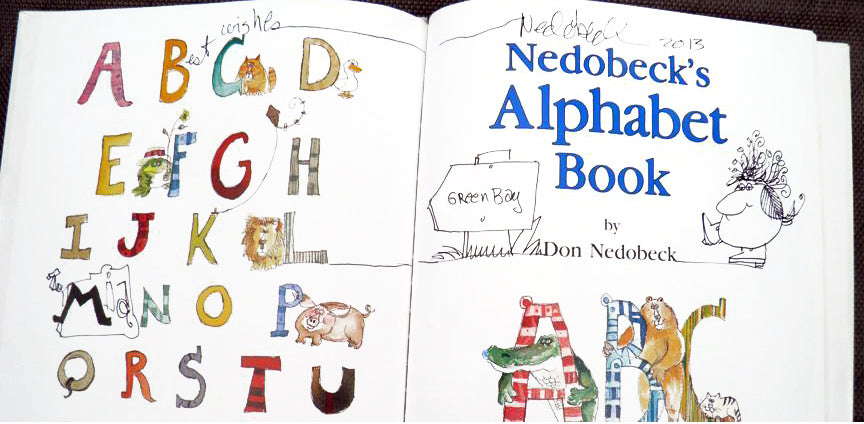 Best wishes
A B C D
E F G H
I J K L
M N O P
Q R S T U
Nedobeck 2013
Nedobeck's
Alphabet
Book
GREEN BAY
by
Don Nedobeck
A B C